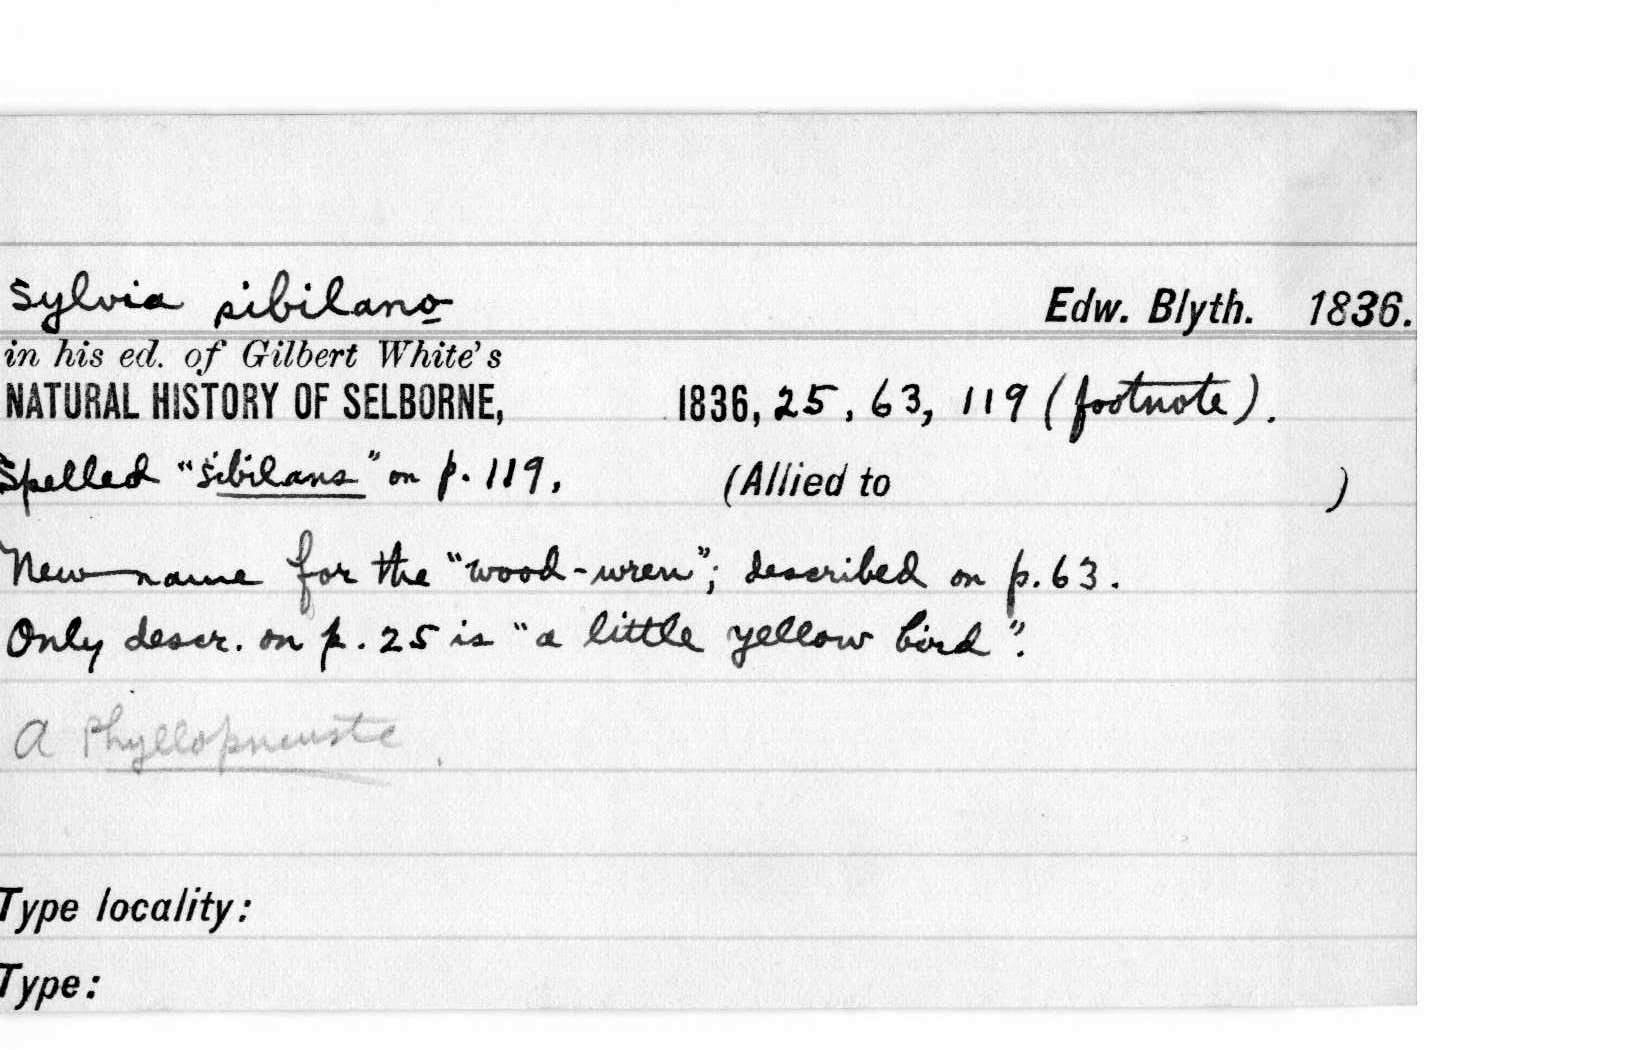 Sylvia sibilano Edw. Blyth. 1836.
in his ed. of Gilbert White's
NATURAL HISTORY OF SELBORNE, 1836, 25, 63, 119 (footnote).
Spelled "sibilans" on p. 119. (Allied to )
New name for the "wood-wren"; described on p. 63.
Only descr. on p. 25 is "a little yellow bird".
A Phyllopneuste
Type locality:
Type: